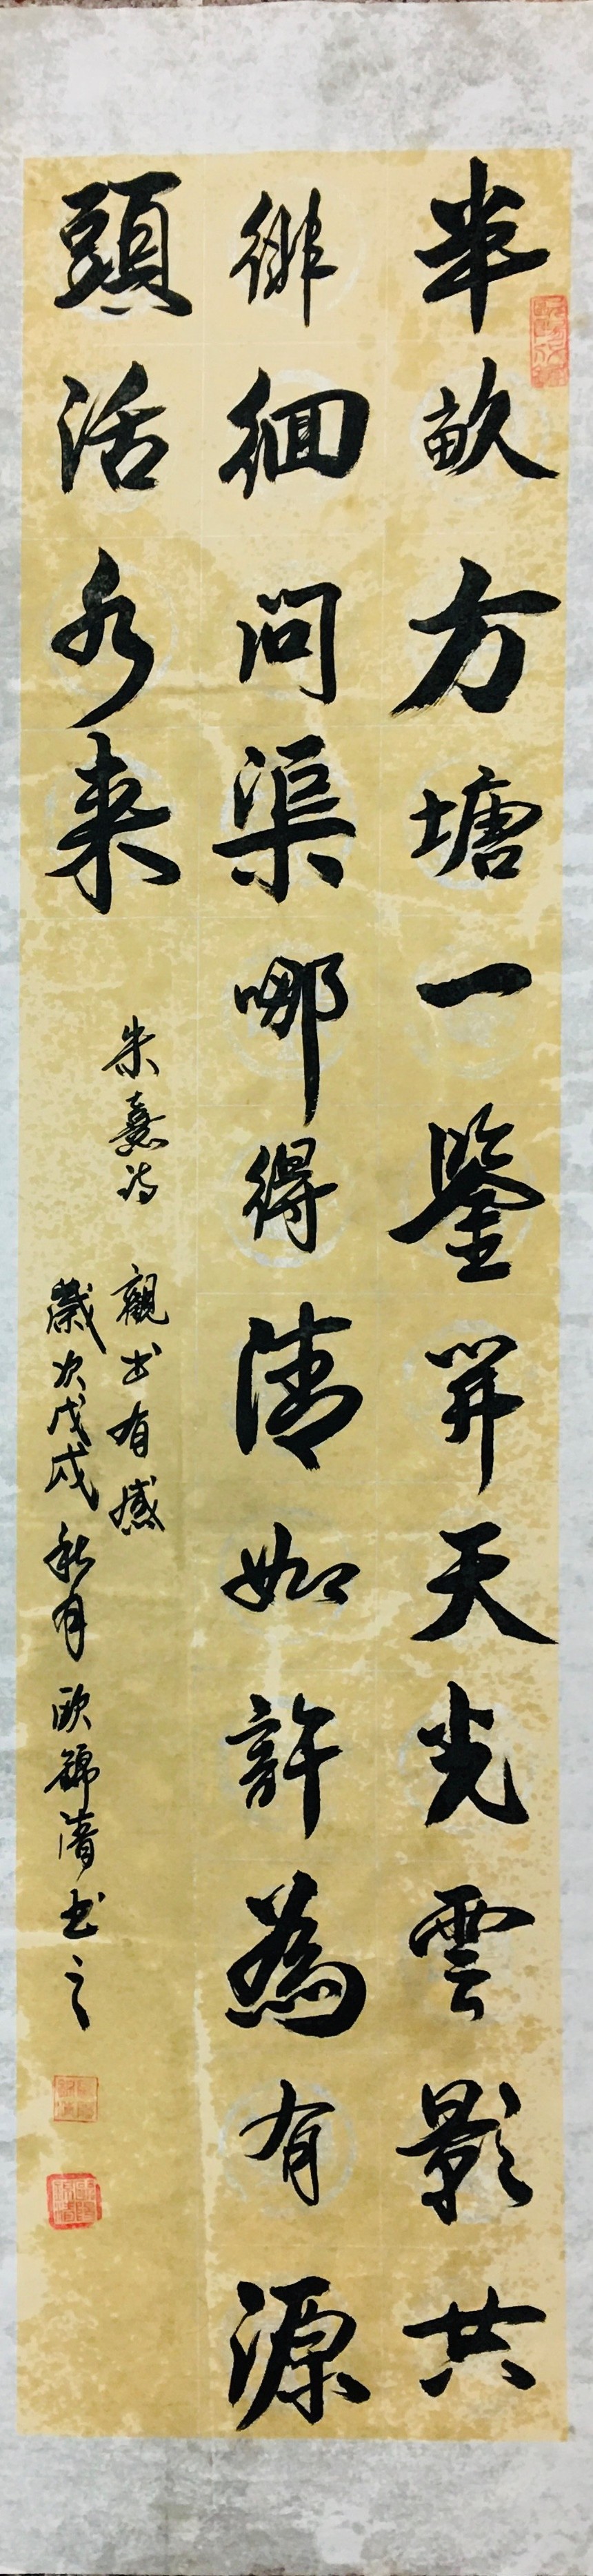 半畝方塘一鑒開天光雲影共
徘徊問渠哪得清如許為有源
頭活水来
朱熹诗 觀书有感
歲次戊戌秋月欧錦清书之